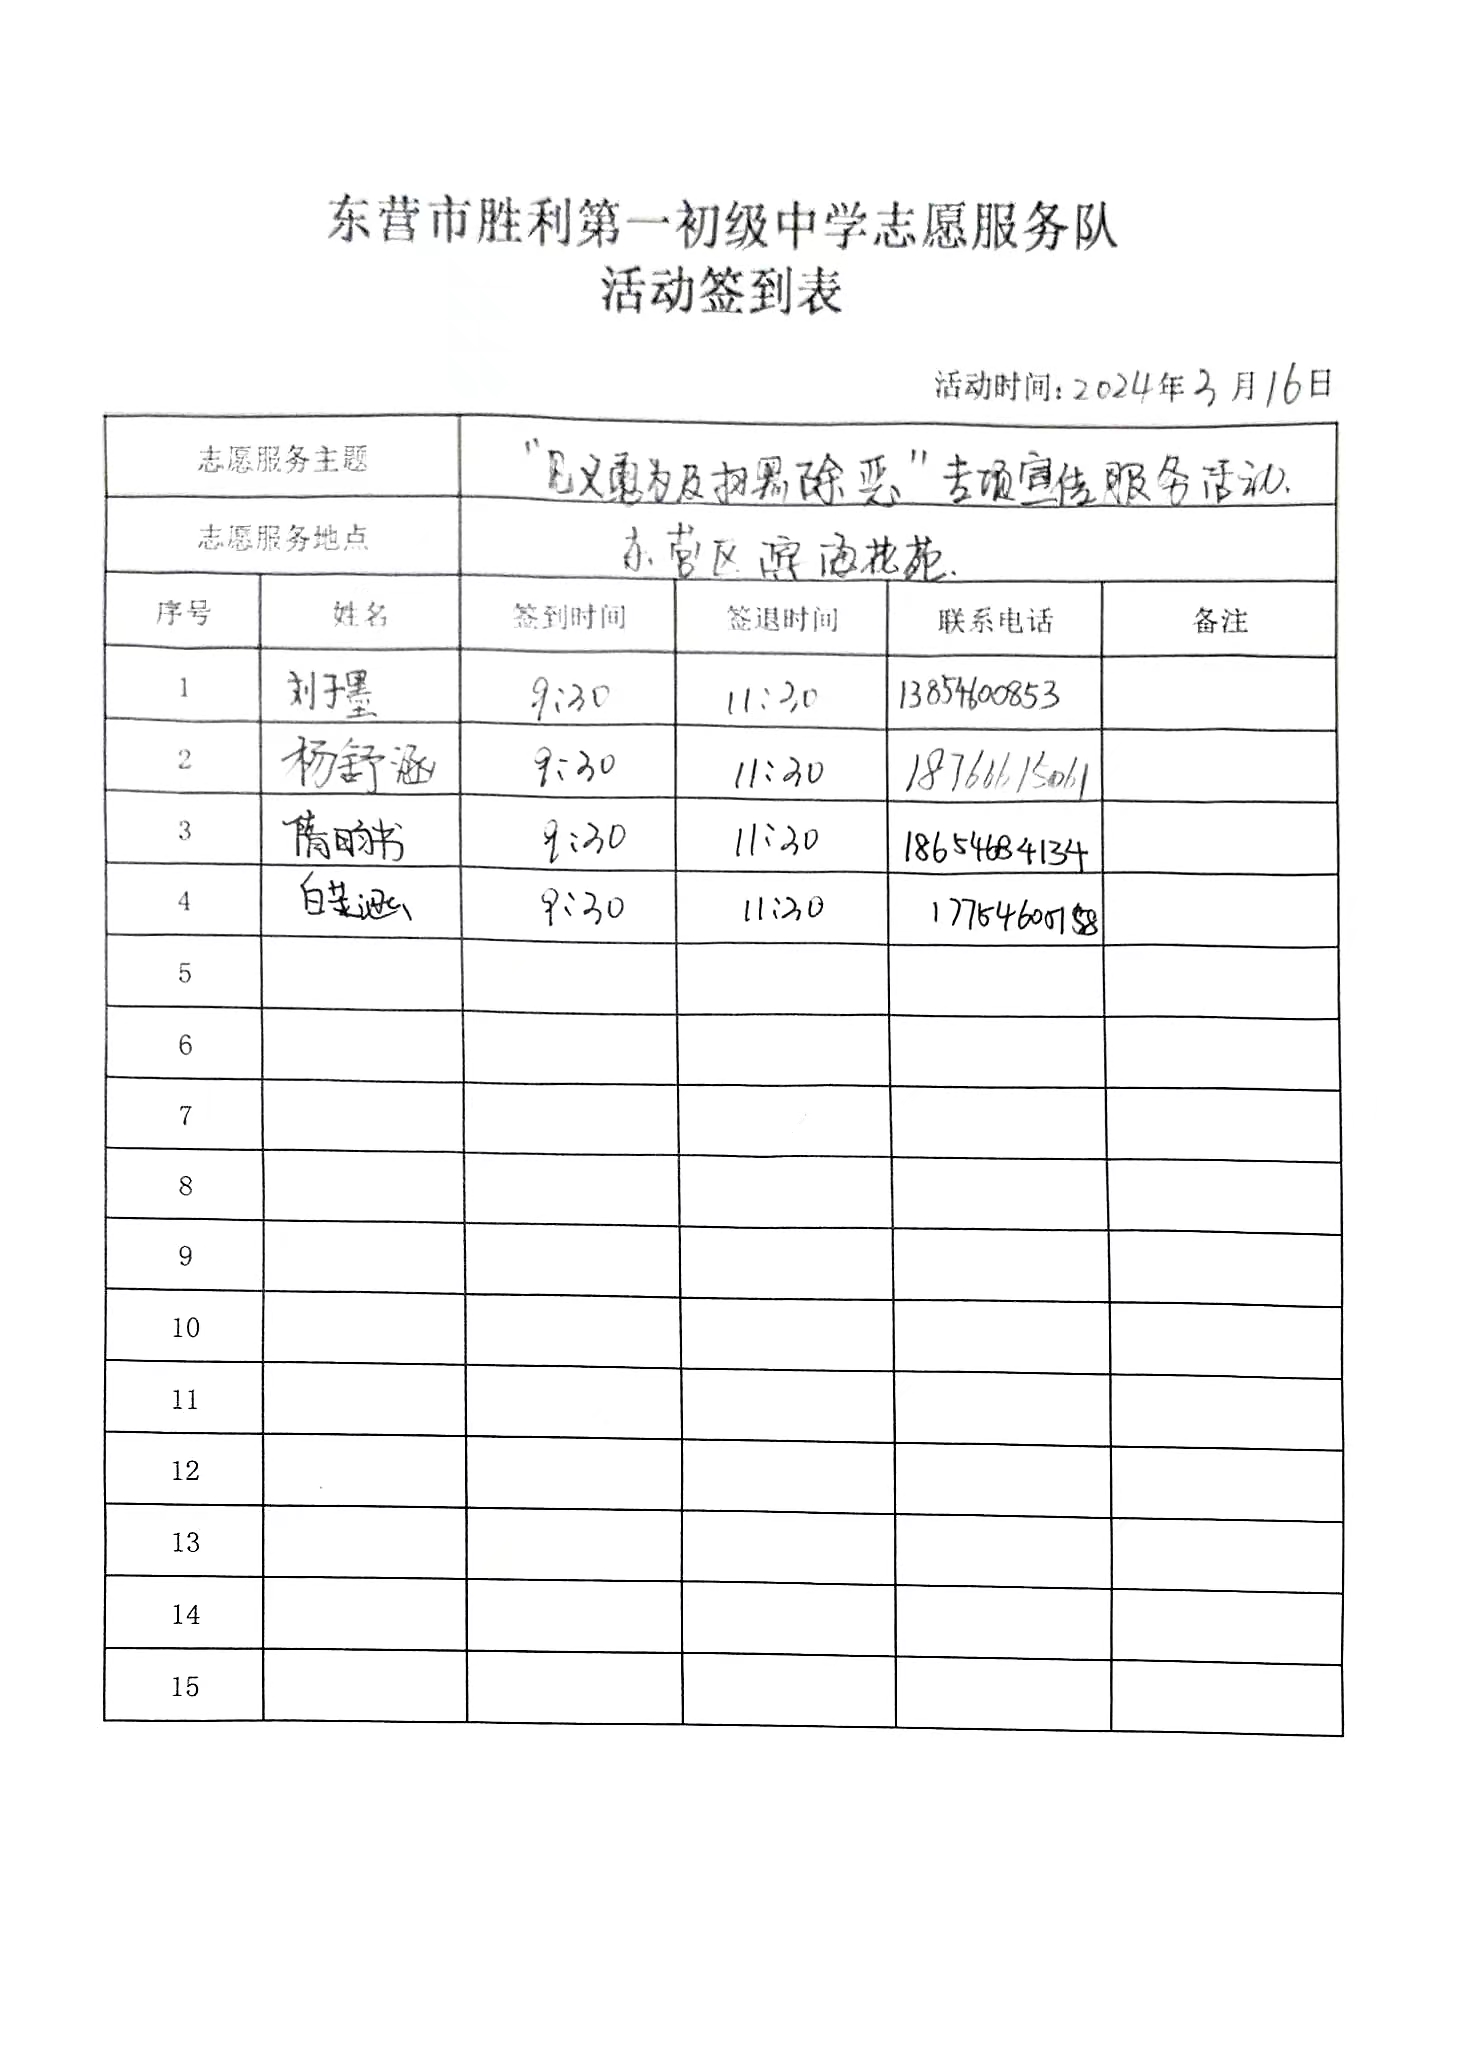 东营市胜利第一初级中学志愿服务队
活动签到表
活动时间:2024年3月16日
志愿服务主题 "见义勇为及扫黑除恶"专项宣传服务活动.
志愿服务地点 东营区滨海花苑.
序号 姓名 签到时间 签退时间 联系电话 备注
1 刘子墨 9:30 11:30 13854600853
2 杨舒涵 9:30 11:30
3 隋昀书 9:30 11:30 18654684134
4 9:30 11:30
5
6
7
8
9
10
11
12
13
14
15